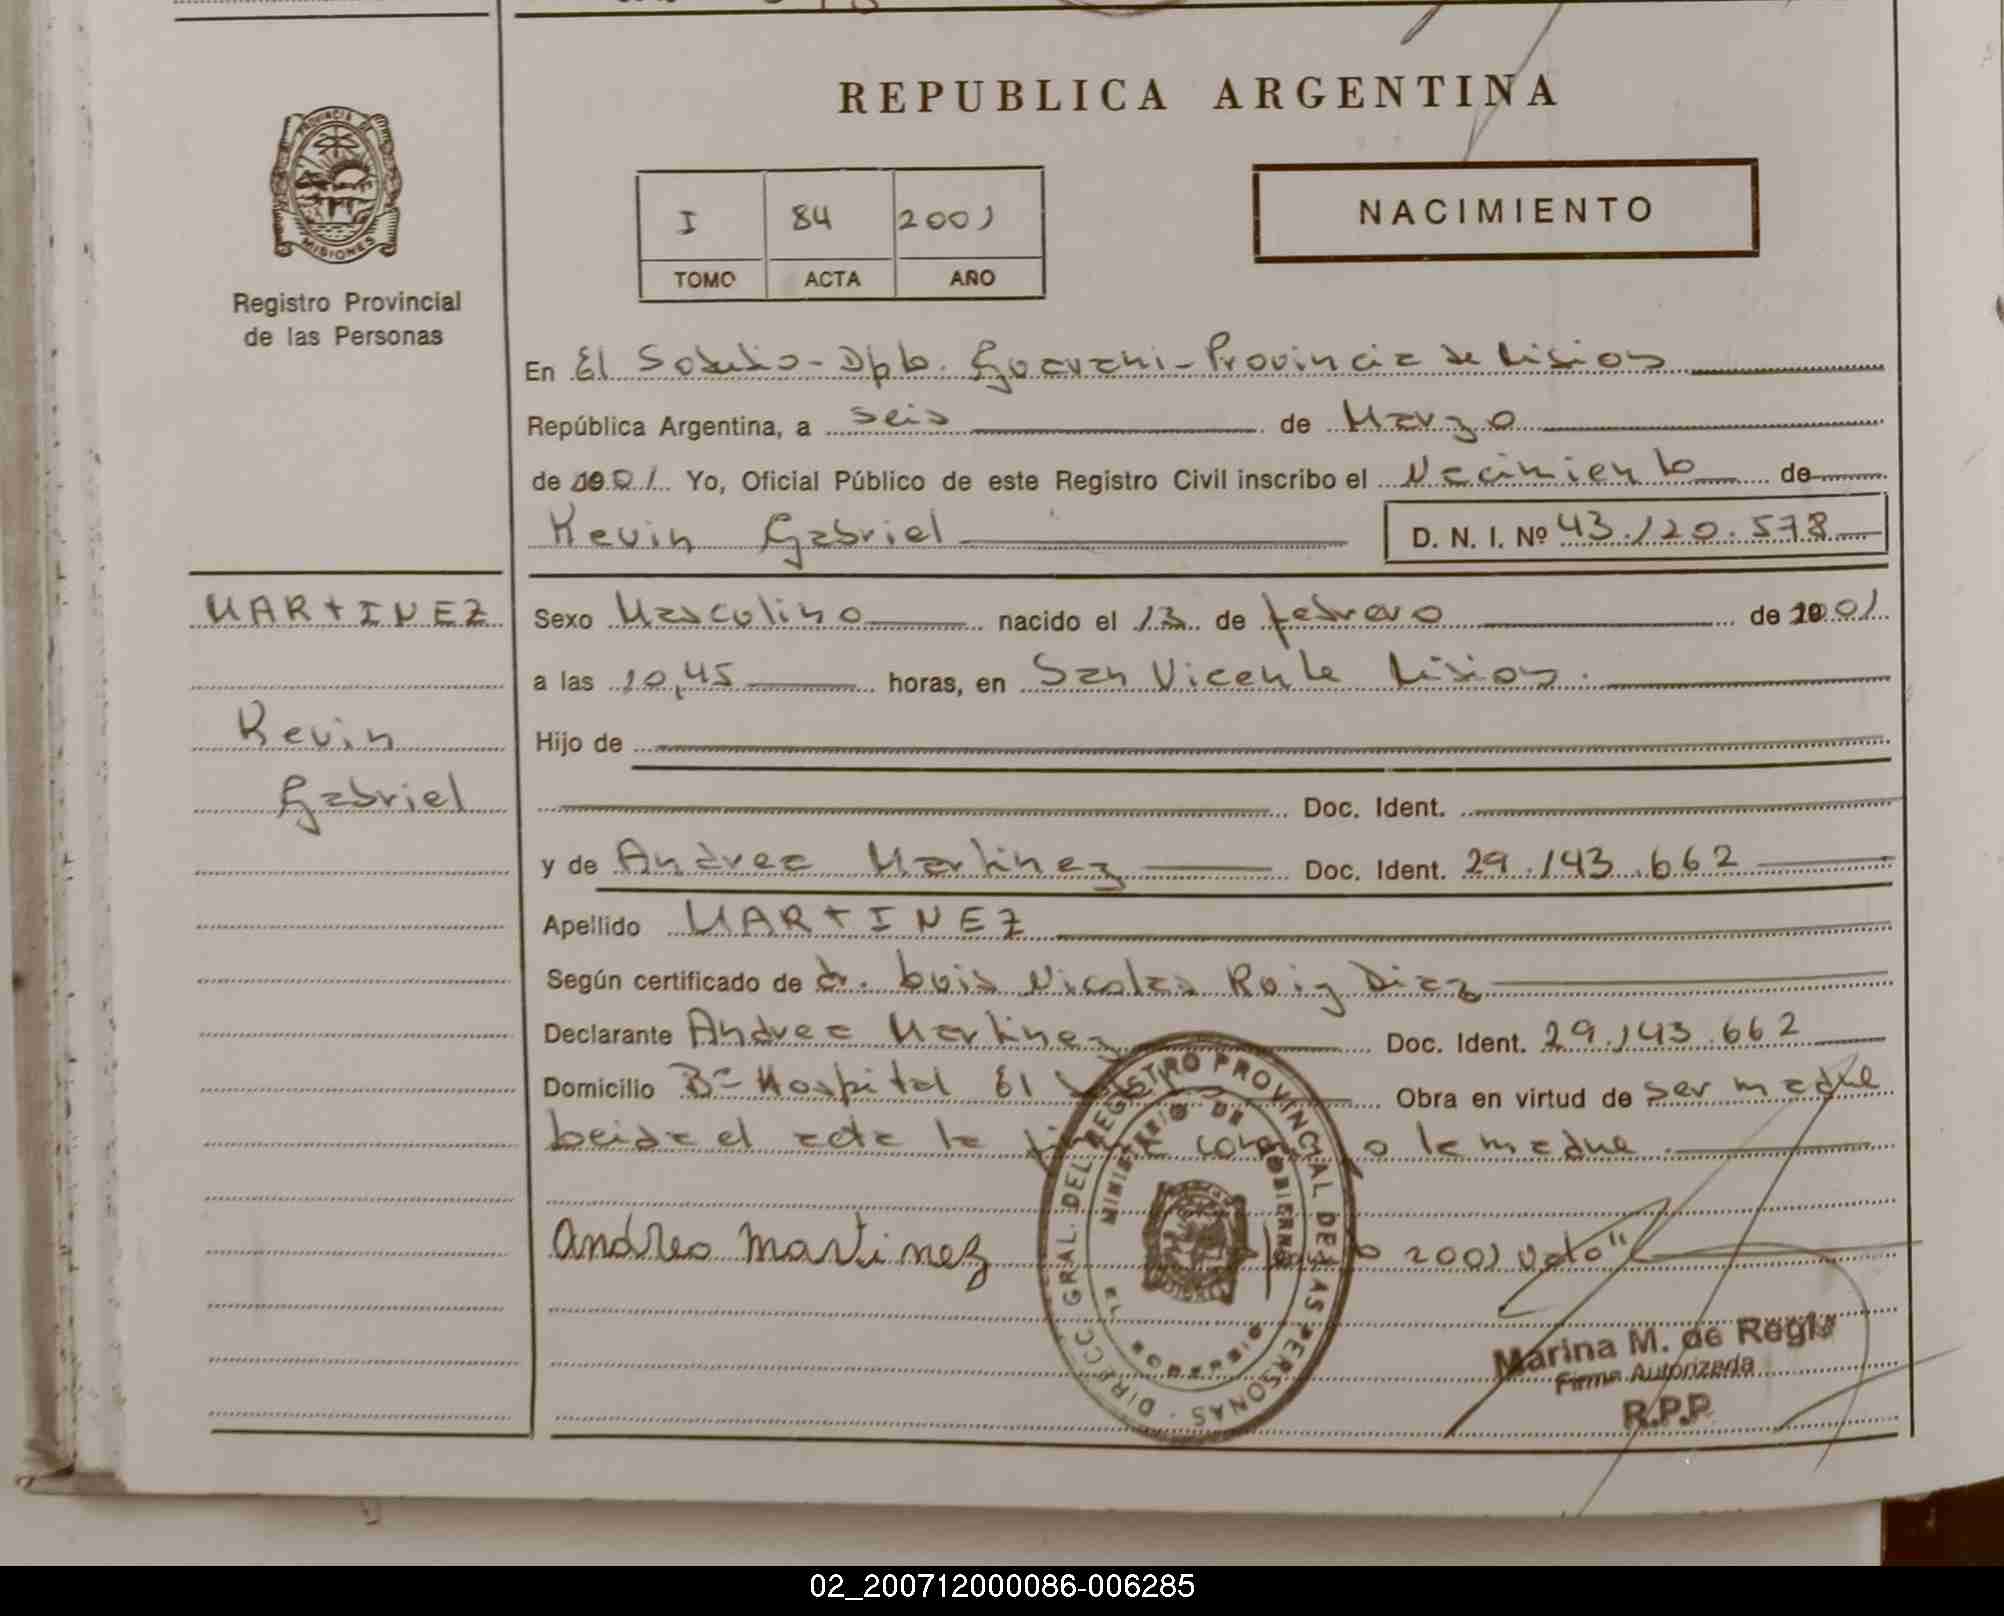 REPUBLICA ARGENTINA
PROVINCIA DE
MISIONES
Registro Provincial
de las Personas
I 84 2001
TOMO ACTA AÑO
NACIMIENTO
En El Soberbio - Dpto. Guarani - Provincia de Misiones
República Argentina, a seis de Marzo
de 2001 Yo, Oficial Público de este Registro Civil inscribo el Nacimiento de
Kevin Gabriel D. N. I. Nº 43.120.578
MARTINEZ
Kevin
Gabriel
Sexo Masculino nacido el 13 de febrero de 2001
a las 10,45 horas, en San Vicente Misiones.
Hijo de
Doc. Ident.
y de Andrea Martinez Doc. Ident. 29.143.662
Apellido MARTINEZ
Según certificado de dr. Luis Nicolas Roig Diaz
Declarante Andrea Martinez Doc. Ident. 29.143.662
Domicilio Bº Hospital El Obra en virtud de ser madre
Leida el acta la firma la madre.
Andrea martinez 2001 Vale"
DIRECC. GRAL. DEL REGISTRO PROVINCIAL DE LAS PERSONAS
MINISTERIO DE GOBIERNO
EL SOBERBIO
Marina M. de Regis
Firma Autorizada
R.P.P.
02_200712000086-006285